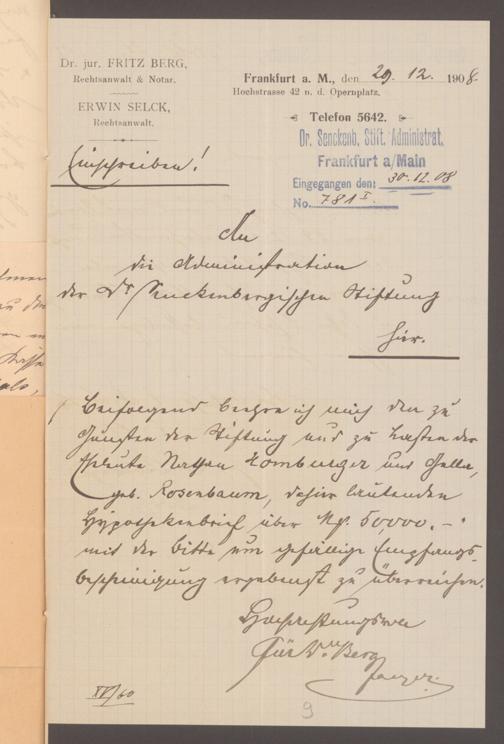 Dr. jur. FRITZ BERG,
Rechtsanwalt & Notar.
ERWIN SELCK,
Rechtsanwalt.
Frankfurt a. M., den 29. 12. 1908.
Hochstrasse 42 n. d. Opernplatz.
Telefon 5642.
Dr. Senckenb. Stift. Administrat.
Frankfurt a/Main
Eingegangen den: 30.12.08
No. 781 I.
Einschreiben!
An
die Administration
der Dr Senckenbergischen Stiftung
hier.
Beifolgend beehre ich mich den zu
Gunsten der Stiftung und zu Lasten der
Eheleute Nathan Homburger und Hella,
geb. Rosenbaum, dahier lautenden
Hypothekenbrief über Mk. 50000.-
mit der Bitte um gefällige Empfangs-
bescheinigung ergebenst zu überreichen.
Hochachtungsvoll
Für Dr. Berg
XV/60
9